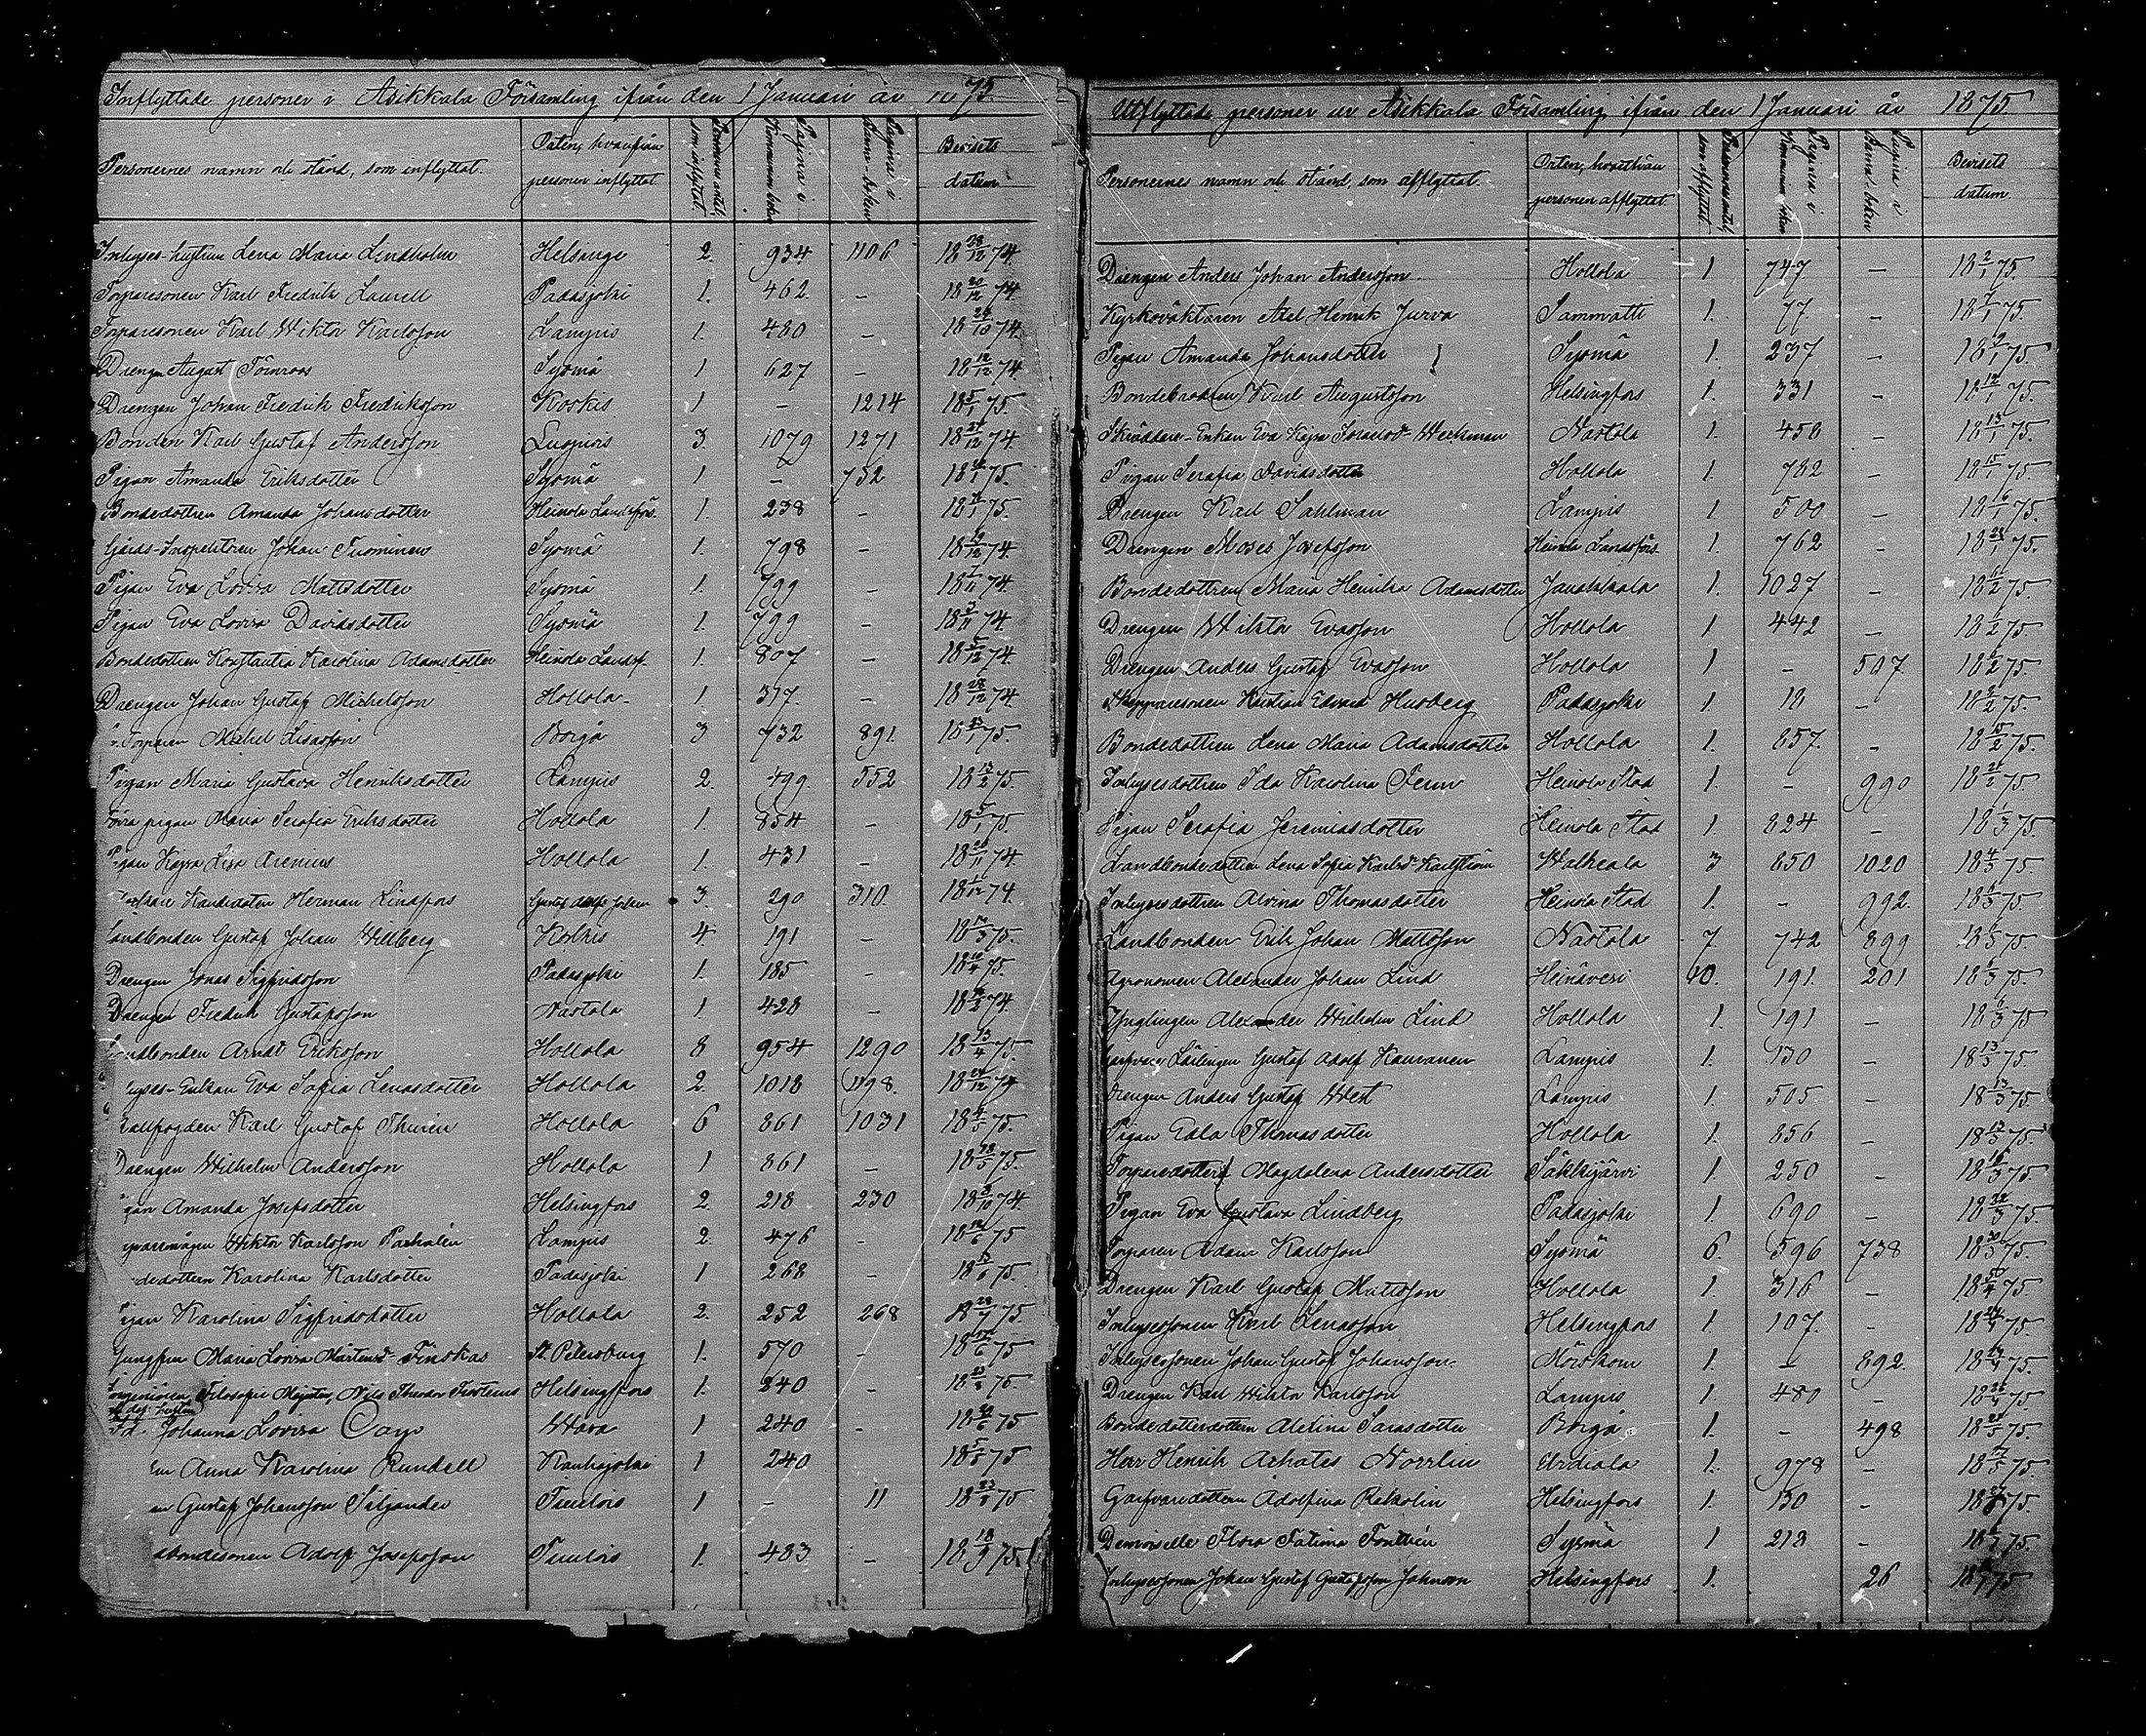 Inflyttade personer i Asikkala Församling ifrån den 1 Januari år 1875.
Personernes namn och stånd, som inflyttat. Orten, hvarifrån personen inflyttat Personernes antal, som inflyttat. Pagina i Kommunion boken Pagina i Barna-boken Bevisets datum
Inhyses-hustrun Lena Maria Lindholm Helsinge 2. 934 1106 18 28/12 74
Torparesonen Karl Fredrik Laurell Padasjoki 1. 462 – 18 22/12 74.
Torparesonen Karl Wiktor Karlsson Lampis 1. 480 – 74.
Drengen August Törnroos Sysmä 1 627 – 18 12/12 74.
Drengen Johan Fredrik Fredriksson Koskis 1 – 1214 18 5/1 75.
Bonden Karl Gustaf Andersson Luopiois 3. 1079 1271 74.
Pigan Amanda Eriksdotter Sysmä 1 – 752 75.
Bondedottren Amanda Johansdotter Heinola Landsförs. 1. 238 – 75.
Gårds-Inspektoren Johan Tuominen Sysmä 1. 798 – 74.
Pigan Eva Lovisa Mattsdotter Sysmä 1. 799 – 18 7/11 74.
Pigan Eva Lovisa Davidsdotter Sysmä 1. 799 – 18 7/11 74.
Bondedottren Konstantia Karolina Adamsdotter Heinola Landsf. 1. 807 – 74.
Drengen Johan Gustaf Michelsson Hollola 1. 377. – 18 28/12 74.
Torparen Michel Lisasson Borgå 3 732 891. 18 23/1 75.
Pigan Maria Gustava Henriksdotter Lampis 2. 499. 552 18 13/2 75.
pigan Maria Serafia Eriksdotter Hollola 1. 854 – 18 5/1 75.
Pigan Kajsa Lisa Arenius Hollola 1. 431 – 74.
Kandidaten Herman Lindfors 3. 290 310. 18 1/12 74.
Landbonden Gustaf Johan Willberg Koskis 4. 191 – 75.
Drengen Jonas Sigfridsson Padasjoki 1. 185 – 75.
Drengen Fredrik Gustafsson Nastola 1 428 – 74.
Landbonden Arndt Eriksson Hollola 8 954 1290 18 13/4 75.
Inhyses-Enkan Eva Sofia Lenasdotter Hollola 2. 1018 1198. 74
Stallfogden Karl Gustaf Thurén Hollola 6 861 1031 75.
Drengen Wilhelm Andersson Hollola 1 861 – 75.
Pigan Amanda Josefsdotter Helsingfors 2. 218 230 74.
Wiktor Karlsson Paikalén Lampis 2. 476 – 75
Karolina Karlsdotter Padasjoki 1 268 – 75.
Pigan Karolina Sigfridsdotter Hollola 2. 252 268 75.
Jungfrun Maria Lovisa Mårtensd. Finskas St. Petersburg 1. 570 – 75
Filosofie Magister, Nils Theodor Helsingfors 1. 240 – 75.
Johanna Lovisa Cay Wasa 1 240 – 75
Anna Karolina Rundell Kauhajoki 1 240 75
Gustaf Johansson Siljander Tuulois 1 – 11 75
Adolf Josefsson Tuulois 1. 483 – 18 18/9 75.
Utflyttade personer ur Asikkala Församling ifrån den 1 Januari år 1875.
Personernes namn och stånd, som afflyttat. Orten, hvartill personen afflyttat. Personernes antal, som afflyttat. Pagina i Kommunion boken Pagina i Barna-boken Bevisets datum.
Drengen Anders Johan Andersson Hollola 1. 747 – 18 2/1 75.
Kyrkovaktaren Axel Henrik Jurva Sammatti 1. 77 – 18 7/1 75.
Pigan Amanda Johansdotter Sysmä 1. 237 – 75.
Bondebrodren Karl Augustsson Helsingfors 1. 331 – 18 12/1 75.
Skräddare-Enkan Eva Kajsa Israelsd. Weckman Nastola 1. 458 – 18 15/1 75.
Pigan Serafia Davidsdotter Hollola 1. 782 – 18 15/1 75.
Drengen Karl Sahlman Lampis 1. 500 – 75.
Drengen Moses Josefsson Heinola Landsförs. 1. 762 – 18 28/1 75.
Bondedottren Maria Henrika Adamsdotter Janakkala 1. 1027 – 75.
Drengen Wiktor Evasson Hollola 1 442 – 75
Drengen Anders Gustaf Evasson Hollola 1 – 507. 75.
Kristian Edvard Husberg Padasjoki 1 18 – 75.
Bondedottren Lena Maria Adamsdotter Hollola 1. 857. – 18 15/2 75.
Inhysesdottren Ida Karolina Fenn Heinola Stad 1. – 990 75.
Pigan Serafia Jeremiasdotter Heinola Stad 1. 824 – 18 1/3 75.
Landbondedottren Lena Sofia Karlsd. Karlström Walkeala 3 850 1020 18 4/3 75.
Inhysesdottren Alvina Thomasdotter Heinola Stad 1. – 992. 75.
Landbonden Erik Johan Mattsson Nastola 7. 742 899 75.
Agronomen Alexander Johan Lind Heinävesi 10. 191. 201 18 6/3 75.
Ynglingen Alexander Wilhelm Lind Hollola 1. 191 – 18 6/3 75
Lärlingen Gustaf Adolf Kauranen Lampis 1. 130 – 18 13/3 75.
Drengen Anders Gustaf West Lampis 1. 505 – 18 13/3 75.
Pigan Edla Thomasdotter Hollola 1. 856 – 75.
Torparedottern Magdalena Andersdotter Säkkijärvi 1. 250 – 75.
Pigan Eva Gustava Lindberg Padasjoki 1. 690 – 18 22/3 75.
Torparen Adam Karlsson Sysmä 6. 596 738 75.
Drengen Karl Gustaf Mattsson Hollola 1. 316 – 75.
Inhysessonen Karl Lenasson Helsingfors 1. 107. – 75.
Inhysessonen Johan Gustaf Johansson Mörskom 1. – 892. 75.
Drengen Karl Wiktor Karlsson Lampis 1. 480 – 75.
Bondedotterdottern Alexina Sarasdotter Borgå 1. – 498 75.
Herr Henrik Achates Norrlin Urdiala 1. 978 – 75.
Garfvaredottern Adolfina Rekolin Helsingfors 1. 130 – 75.
Demoiselle Flora Fatima Sysmä 1 218 – 75.
Inhysessonen Johan Gustaf Gustafsson Johnson Helsingfors 1. 26 75